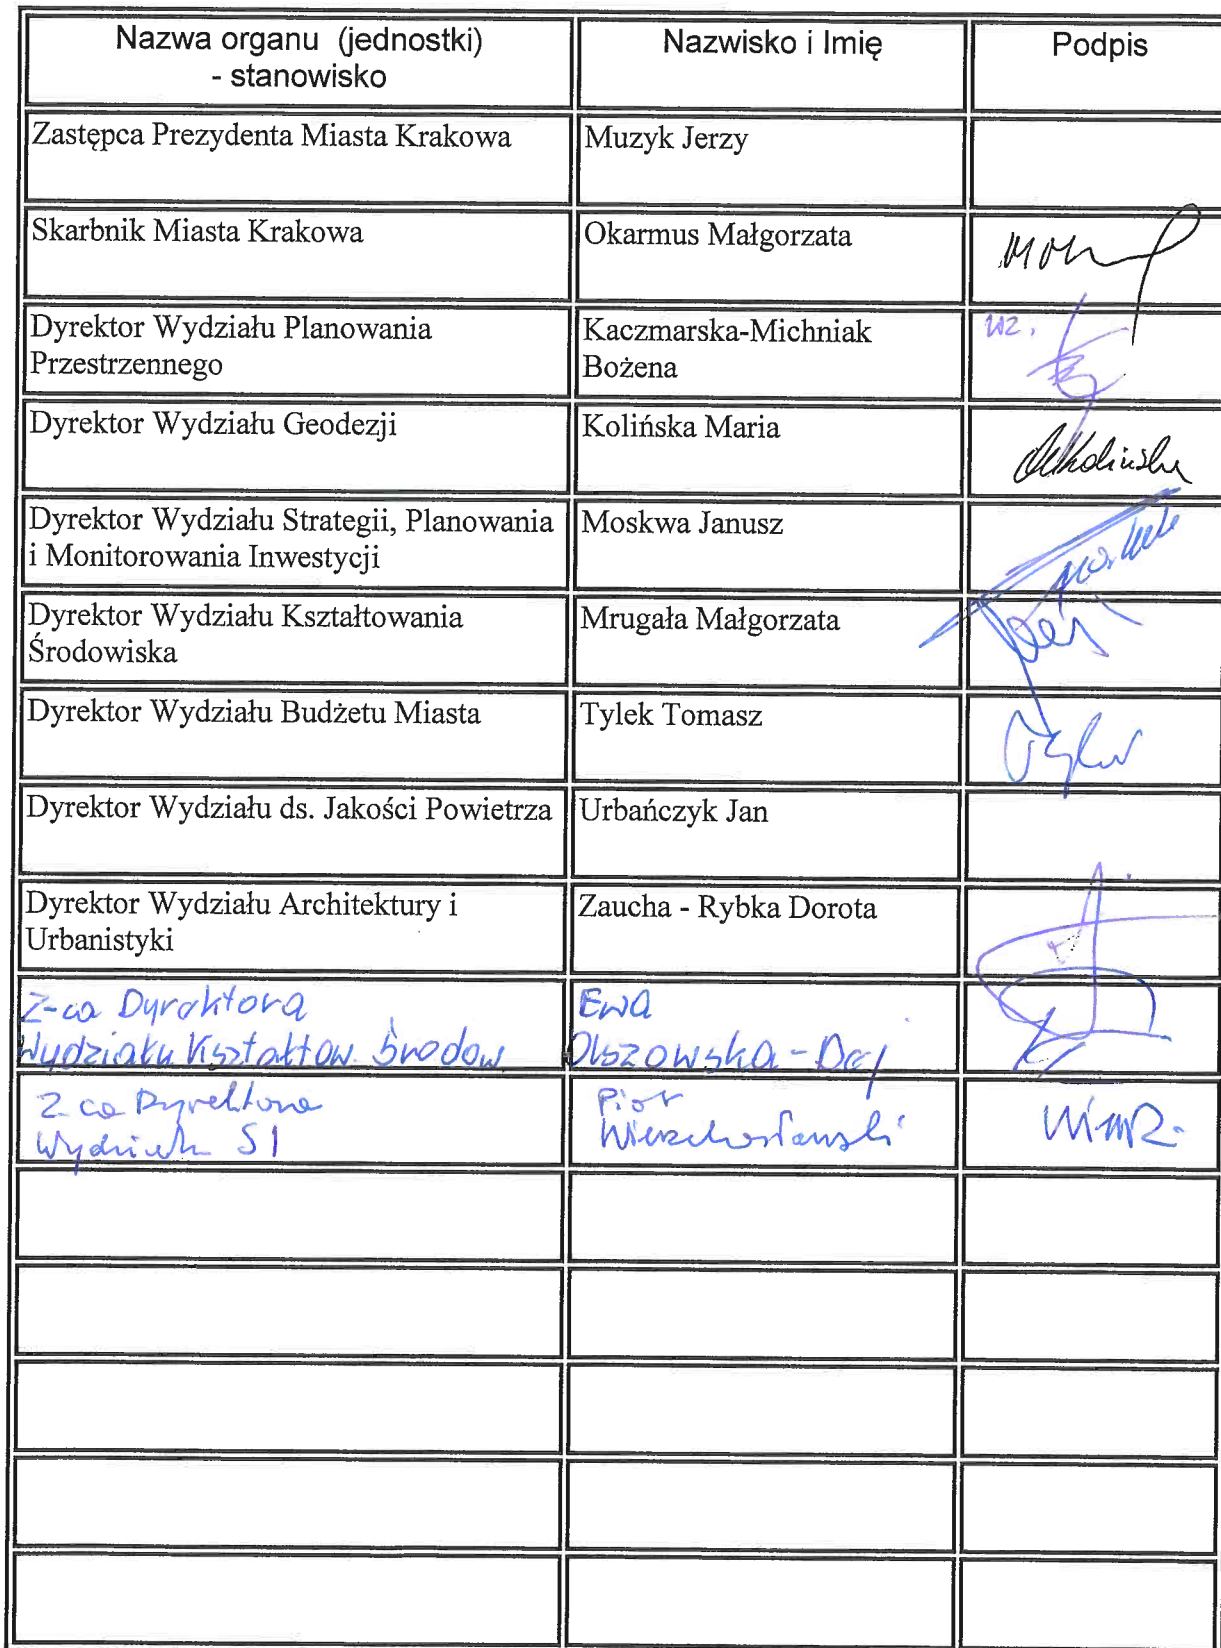 Nazwa organu (jednostki)
- stanowisko
Nazwisko i Imię
Podpis
Zastępca Prezydenta Miasta Krakowa
Muzyk Jerzy
Skarbnik Miasta Krakowa
Okarmus Małgorzata
Dyrektor Wydziału Planowania
Przestrzennego
Kaczmarska-Michniak
Bożena
wz.
Dyrektor Wydziału Geodezji
Kolińska Maria
Dyrektor Wydziału Strategii, Planowania
i Monitorowania Inwestycji
Moskwa Janusz
Dyrektor Wydziału Kształtowania
Środowiska
Mrugała Małgorzata
Dyrektor Wydziału Budżetu Miasta
Tylek Tomasz
Dyrektor Wydziału ds. Jakości Powietrza
Urbańczyk Jan
Dyrektor Wydziału Architektury i
Urbanistyki
Zaucha - Rybka Dorota
Z-ca Dyrektora
Wydziału Kształtow. Środow
Ewa
Olszowska-Dej
Z-ca Dyrektora
Wydziału SI
Piotr